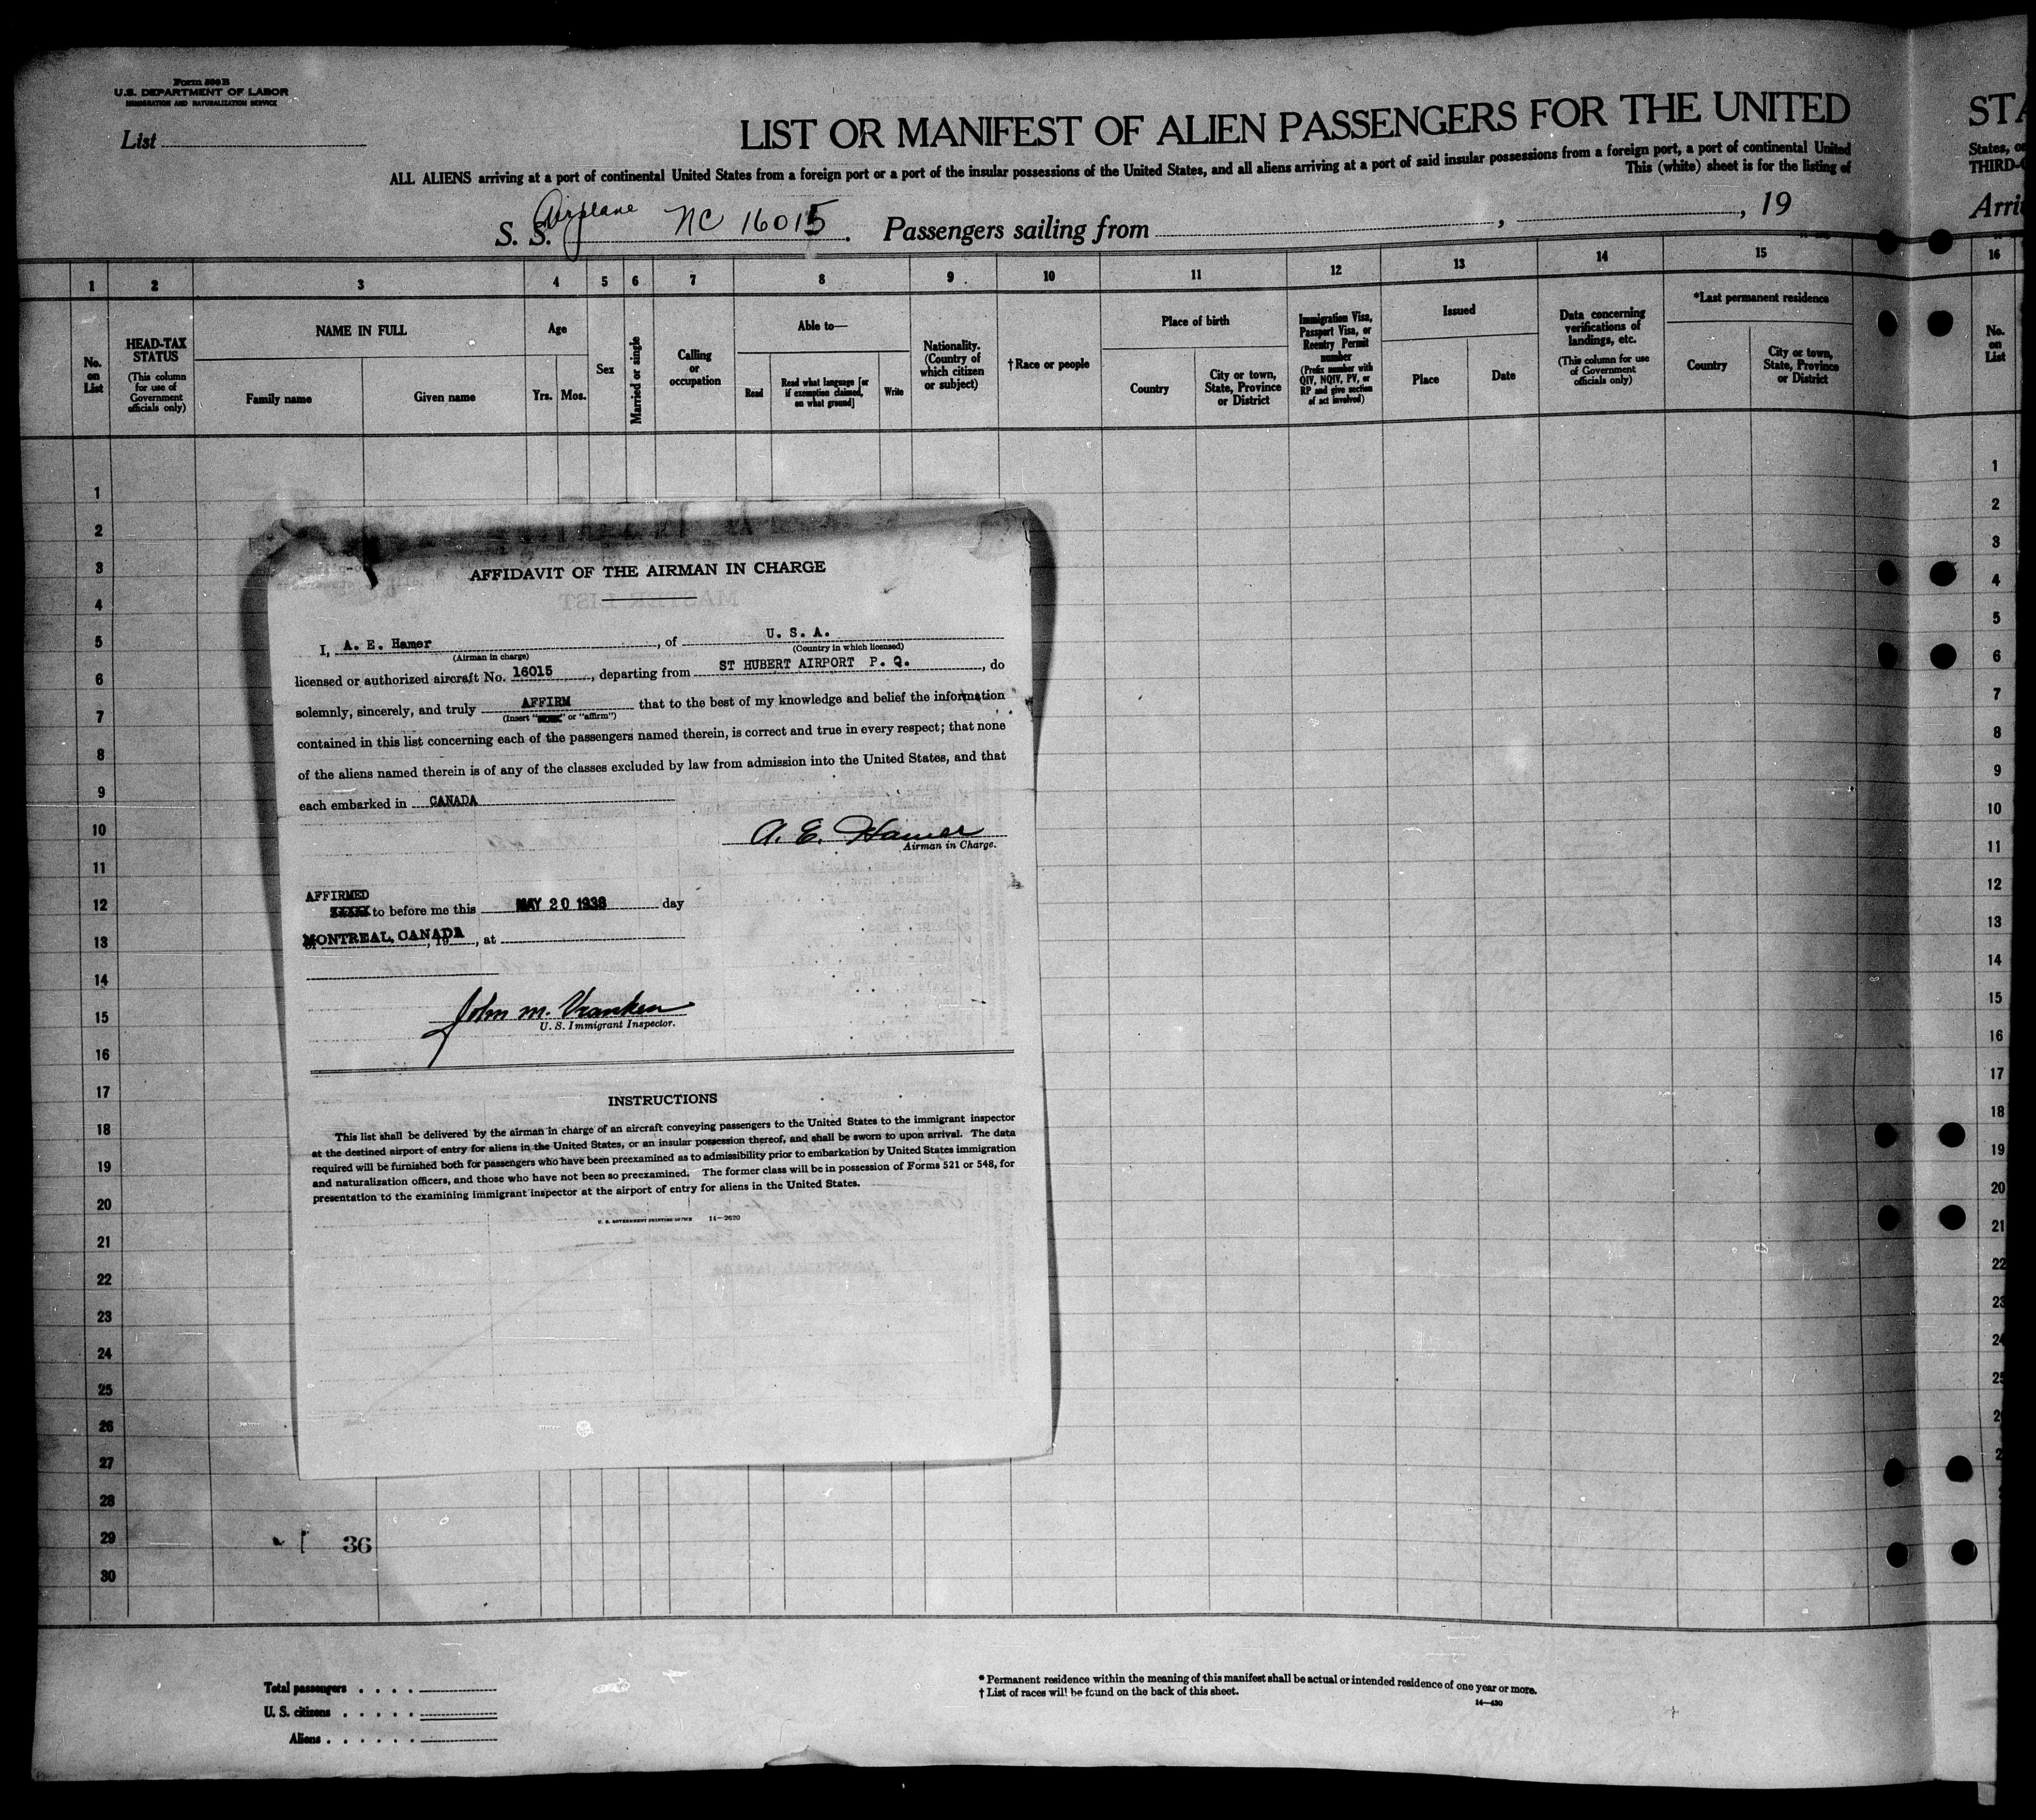 Form 500 B
U.S. DEPARTMENT OF LABOR
IMMIGRATION AND NATURALIZATION SERVICE
List
LIST OR MANIFEST OF ALIEN PASSENGERS FOR THE UNITED
STA
ALL ALIENS arriving at a port of continental United States from a foreign port or a port of the insular possessions of the United States, and all aliens arriving at a port of said insular possessions from a foreign port, a port of continental United
States, or
This (white) sheet is for the listing of
THIRD-C
S. S. Airplane NC 16015. Passengers sailing from , , 19
Arri
1 2 3 4 5 6 7 8 9 10 11 12 13 14 15 16
No. on List
HEAD-TAX STATUS
(This column for use of Government officials only)
NAME IN FULL
Family name Given name
Age
Yrs. Mos.
Sex
Married or single
Calling or occupation
Able to—
Read
Read what language [or if exemption claimed, on what ground]
Write
Nationality. (Country of which citizen or subject)
†Race or people
Place of birth
Country
City or town, State, Province or District
Immigration Visa, Passport Visa, or Reentry Permit number
(Prefix number with QIV, NQIV, PV, or RP and give section of act involved)
Issued
Place Date
Data concerning verifications of landings, etc.
(This column for use of Government officials only)
*Last permanent residence
Country
City or town, State, Province or District
No. on List
1
2
3
4
5
6
7
8
9
10
11
12
13
14
15
16
17
18
19
20
21
22
23
24
25
26
27
28
29
30
AFFIDAVIT OF THE AIRMAN IN CHARGE
MASTER LIST
I, A. E. Hamer, of U. S. A.
(Airman in charge) (Country in which licensed)
licensed or authorized aircraft No. 16015, departing from ST HUBERT AIRPORT P. Q., do
solemnly, sincerely, and truly AFFIRM that to the best of my knowledge and belief the information
(Insert " " or "affirm")
contained in this list concerning each of the passengers named therein, is correct and true in every respect; that none
of the aliens named therein is of any of the classes excluded by law from admission into the United States, and that
each embarked in CANADA
A. E. Hamer
Airman in Charge.
AFFIRMED
XXXXX to before me this MAY 20 1938 day
MONTREAL, CANADA, 19, at
John M. Vranken
U. S. Immigrant Inspector.
INSTRUCTIONS
This list shall be delivered by the airman in charge of an aircraft conveying passengers to the United States to the immigrant inspector
at the destined airport of entry for aliens in the United States, or an insular possession thereof, and shall be sworn to upon arrival. The data
required will be furnished both for passengers who have been preexamined as to admissibility prior to embarkation by United States immigration
and naturalization officers, and those who have not been so preexamined. The former class will be in possession of Forms 521 or 548, for
presentation to the examining immigrant inspector at the airport of entry for aliens in the United States.
U. S. GOVERNMENT PRINTING OFFICE 14—2620
36
1
2
3
4
5
6
7
8
9
10
11
12
13
14
15
16
17
18
19
20
21
22
23
Total passengers . . . .
U. S. citizens . . . . .
Aliens . . . . . .
* Permanent residence within the meaning of this manifest shall be actual or intended residence of one year or more.
† List of races will be found on the back of this sheet.
14—430